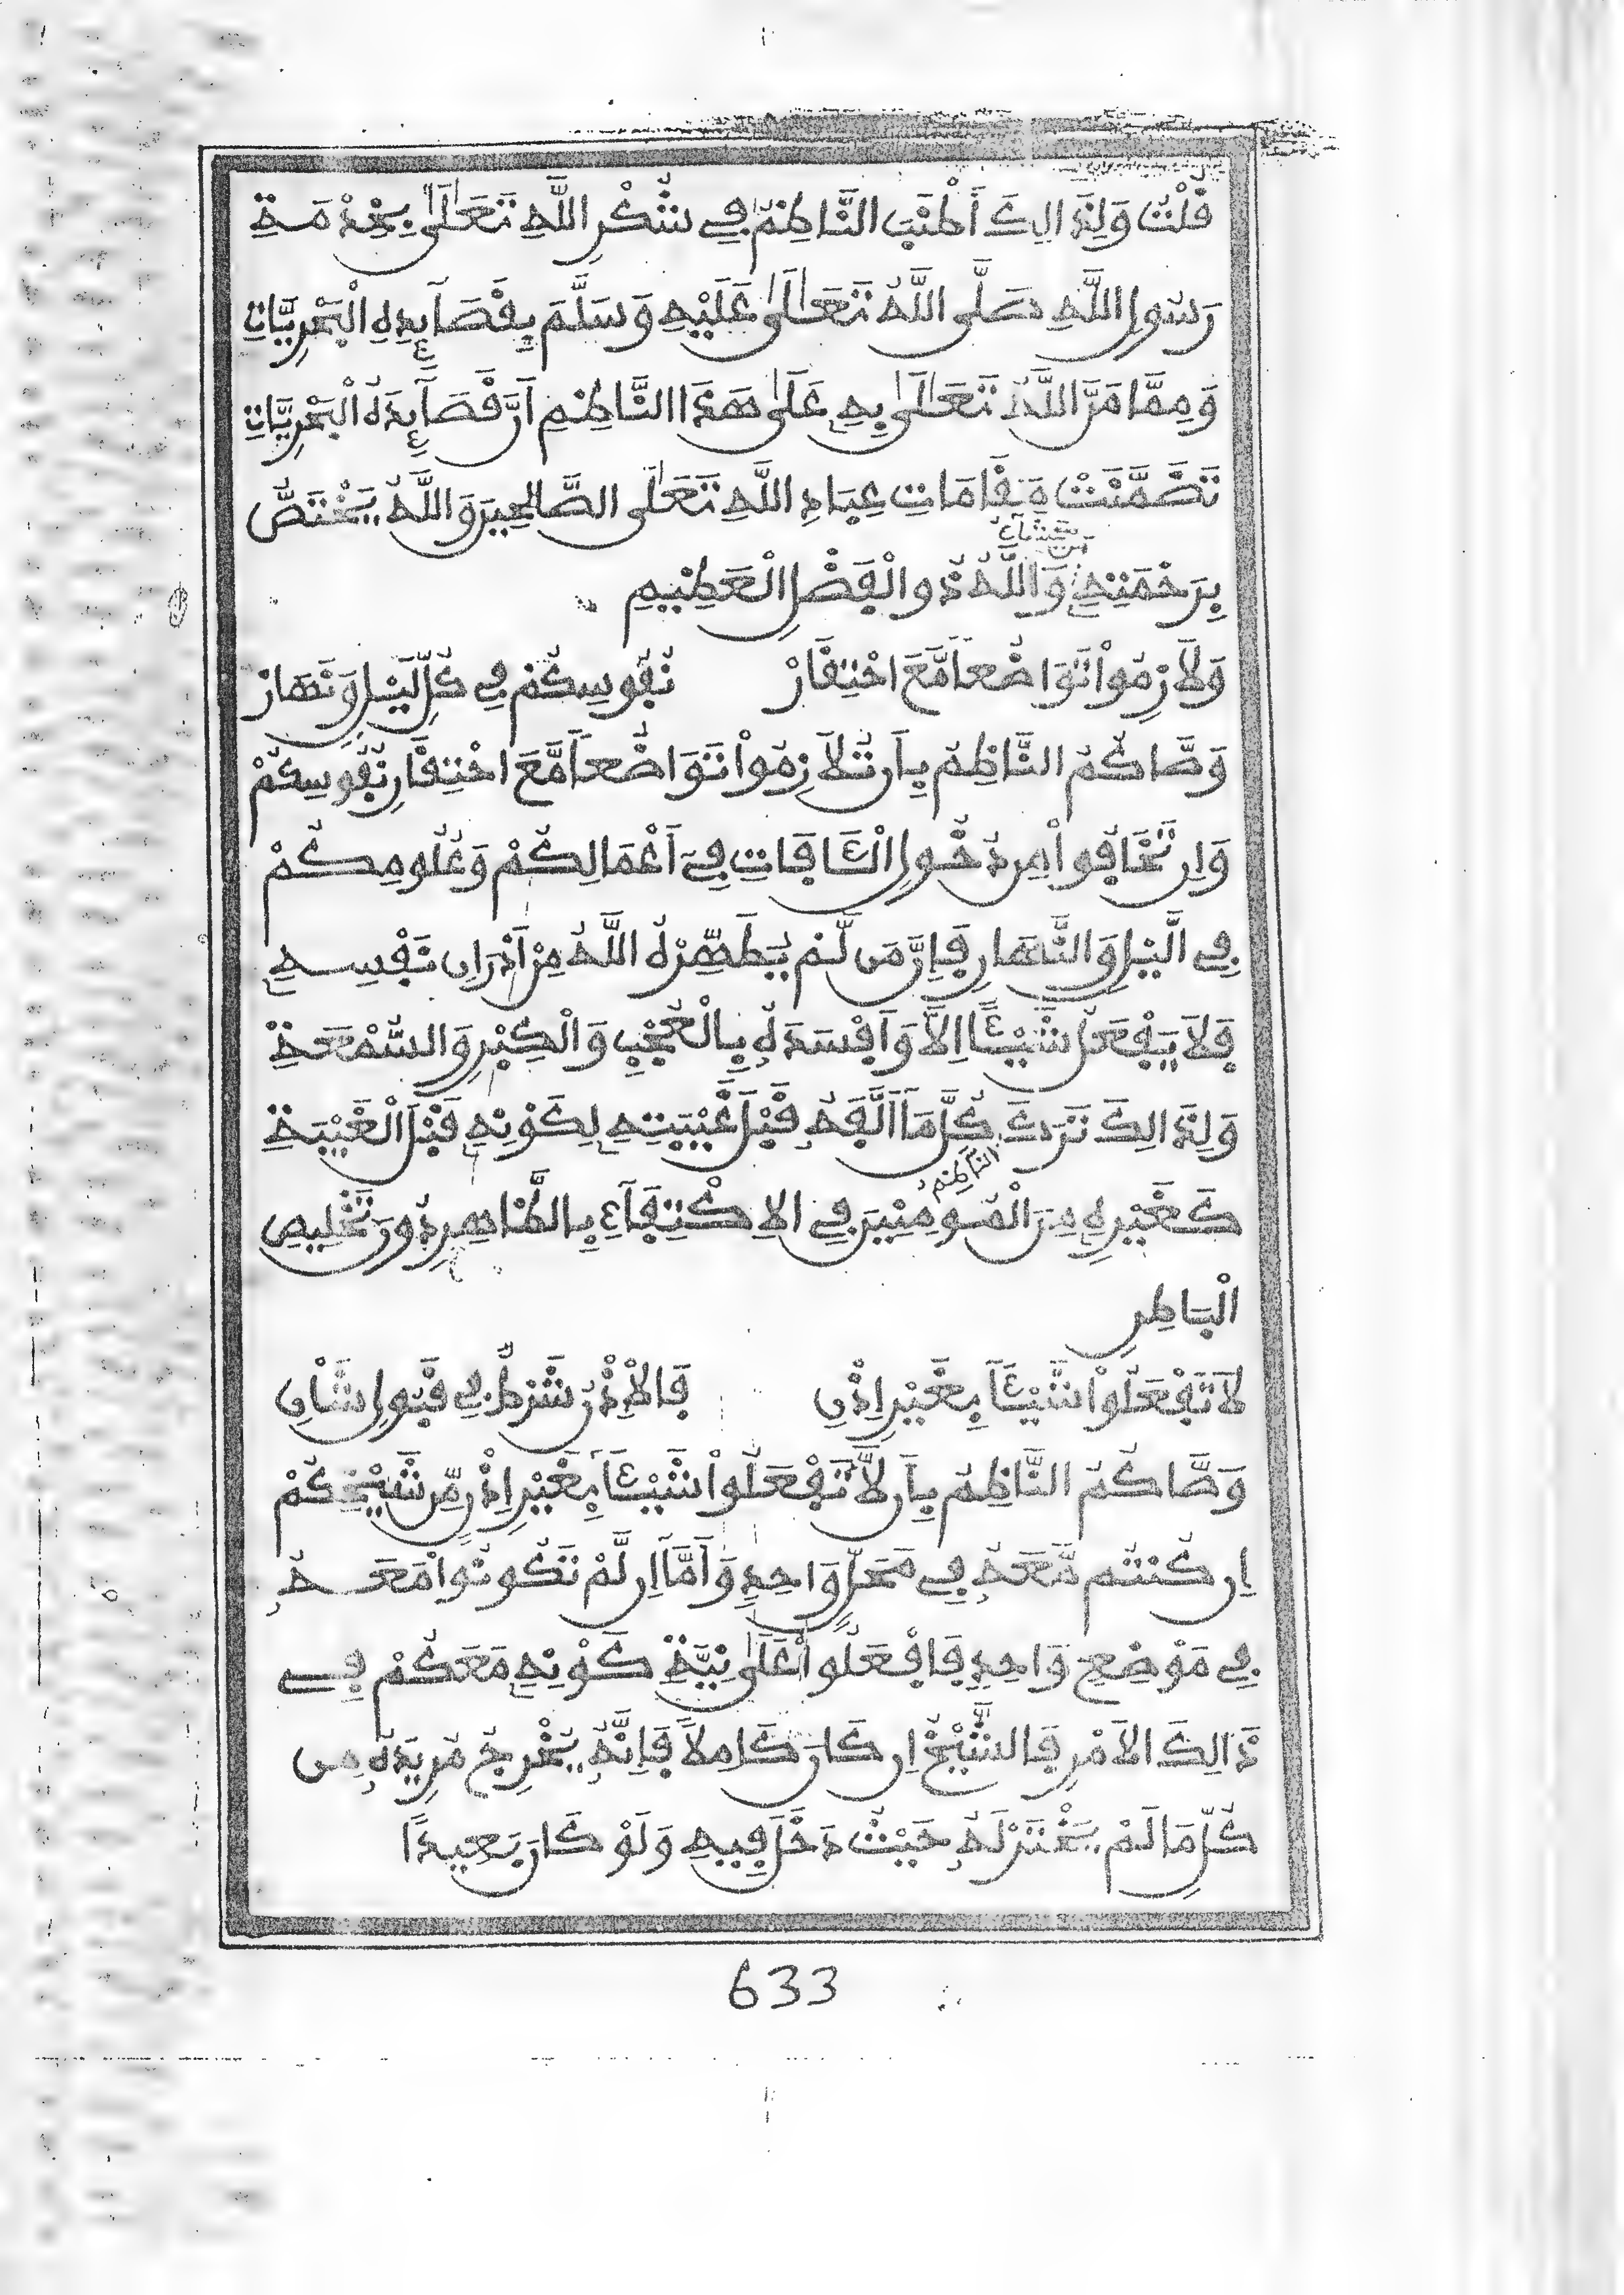 قُلْتُ وَلِذَالِكَ أَطْنَبَ النَّاظِمُ فِي شُكْرِ اللَّهِ تَعَالَىٰ بِخِدْمَةِ
رَسُولِ اللَّهِ صَلَّى اللَّهُ تَعَالَىٰ عَلَيْهِ وَسَلَّمَ بِقَصَآئِدِهِ الْبَحْرِيَّاتِ
وَمِمَّا مَنَّ اللَّهُ تَعَالَىٰ بِهِ عَلَىٰ هَذَا النَّاظِمِ أَنَّ قَصَآئِدَهُ الْبَحْرِيَّاتِ
تَضَمَّنَتْ مَقَامَاتِ عِبَادِ اللَّهِ تَعَالَى الصَّالِحِينَ وَاللَّهُ يَخْتَصُّ
بِرَحْمَتِهِ مَنْ يَّشَآءُ وَاللَّهُ ذُو الْفَضْلِ الْعَظِيمِ
وَلَازِمُواْ تَوَاضُعاً مَّعَ احْتِقَارْ نُفُوسِكُمْ فِي كُلِّ لَيْلٍ وَنَهَارْ
وَصَّاكُمُ النَّاظِمُ بِأَن تُلَازِمُواْ تَوَاضُعاً مَّعَ احْتِقَارِ نُفُوسِكُمْ
وَإِن تَخَافُواْ مِن دُخُولِ الْآفَاتِ فِي أَعْمَالِكُمْ وَعُلُومِكُمْ
فِي الَّيْلِ وَالنَّهَارِ فَإِنَّ مَن لَّمْ يُطَهِّرْهُ اللَّهُ مِنْ أَدْرَانِ نَفْسِهِ
فَلَا يَفْعَلُ شَيْئاً إِلَّا وَأَفْسَدَهُ بِالْعُجْبِ وَالْكِبْرِ وَالسُّمْعَةِ
وَلِذَالِكَ تَرَكَ النَّاظِمُ كُلَّ مَا أَلَّفَهُ قَبْلَ غَيْبَتِهِ لِكَوْنِهِ قَبْلَ الْغَيْبَةِ
كَغَيْرِهِ مِنَ الْمُومِنِينَ فِي الِاكْتِفَآءِ بِالظَّاهِرِ دُونَ تَخْلِيصِ
الْبَاطِنِ
لَا تَفْعَلُواْ شَيْئاً بِغَيْرِ إِذْنِ فَالْإِذْنُ شَرْطٌ فِي قَبُولِ شَانِ
وَصَّاكُمُ النَّاظِمُ بِأَن لَّا تَفْعَلُواْ شَيْئاً بِغَيْرِ إِذْنٍ مِّن شَيْخِكُمْ
إِن كُنتُم مَّعَهُ فِي مَحَلٍّ وَاحِدٍ وَأَمَّا إِن لَّمْ تَكُونُواْ مَعَهُ
فِي مَوْضِعٍ وَاحِدٍ فَافْعَلُواْ عَلَىٰ نِيَّةِ كَوْنِهِ مَعَكُمْ فِي
ذَالِكَ الْأَمْرِ فَالشَّيْخُ إِن كَانَ كَامِلاً فَإِنَّهُ يُخْرِجُ مُرِيدَهُ مِن
كُلِّ مَا لَمْ يَخْتَرْ لَهُ حَيْثُ دَخَلَ فِيهِ وَلَوْ كَانَ بَعِيداً
633